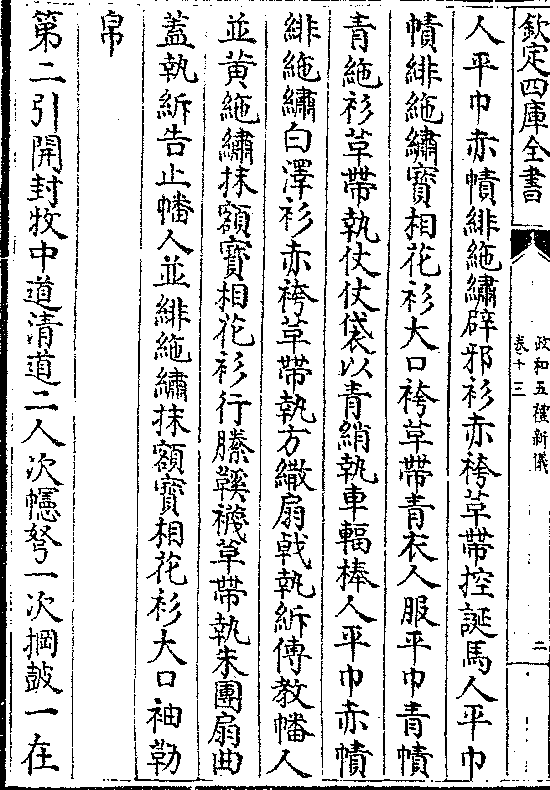 欽定四庫全書
政和五禮新儀
卷十三
二
人平巾赤幘緋絁繡辟邪衫赤袴革帶控誕馬人平巾
幘緋絁繡寶相花衫大口袴革帶青衣人服平巾青幘
青絁衫革帶執仗仗袋以青絹執車輻棒人平巾赤幘
緋絁繡白澤衫赤袴革帶執方繖扇戟執絳傳教幡人
並黃絁繡抹額寶相花衫行縢鞵襪革帶執朱團扇曲
蓋執絳告止幡人並緋絁繡抹額寶相花衫大口袖勒
帛
第二引開封牧中道清道二人次幰弩一次掆鼓一在